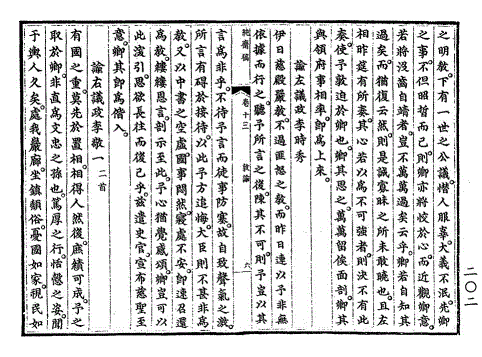 之明敎下有一世之公議憯人服辜大義不泯先卿
之事不但昭晳而已則卿亦將恔於心而近觀卿意
若將沒齒自靖者豈不萬萬過矣乎卿若自知其
過矣而猶復云然則是誠寡昧之所未敢曉也且左
相昨筵有所奏其心若以爲不可強者則決不有此
奏使予敦迫於卿也卿其思之萬萬留俟面剖卿其
與領府事相率卽爲上來
諭左議政李時秀
伊日慈殿嚴敎不過匪怒之敎而昨日違以予非無
依據而行之聽予所言之後陳其不可則予豈以其
言爲非乎不待予言而徒事防塞故自致聲氣之激
所言有碍於接待以此予方追悔大臣則不甚非爲
敎又以中書之空虛國事悶然寢處不安卽速召還
爲敎縷縷恩言剖示至此予心猶覺感頌卿豈可以
此深引思欲長往而後已乎玆遣史官宣布慈聖至
意卿其卽爲偕入
諭右議政李敬一 二首
有國之重莫先於置相相得人然後庶績可成予之
取於卿非直爲文忠之孫也篤厚之行恬憺之姿聞
于輿人久矣處我巖廊坐鎭頹俗憂國如家視民如
純齋稿 卷十三 敎諭 六
二〇二